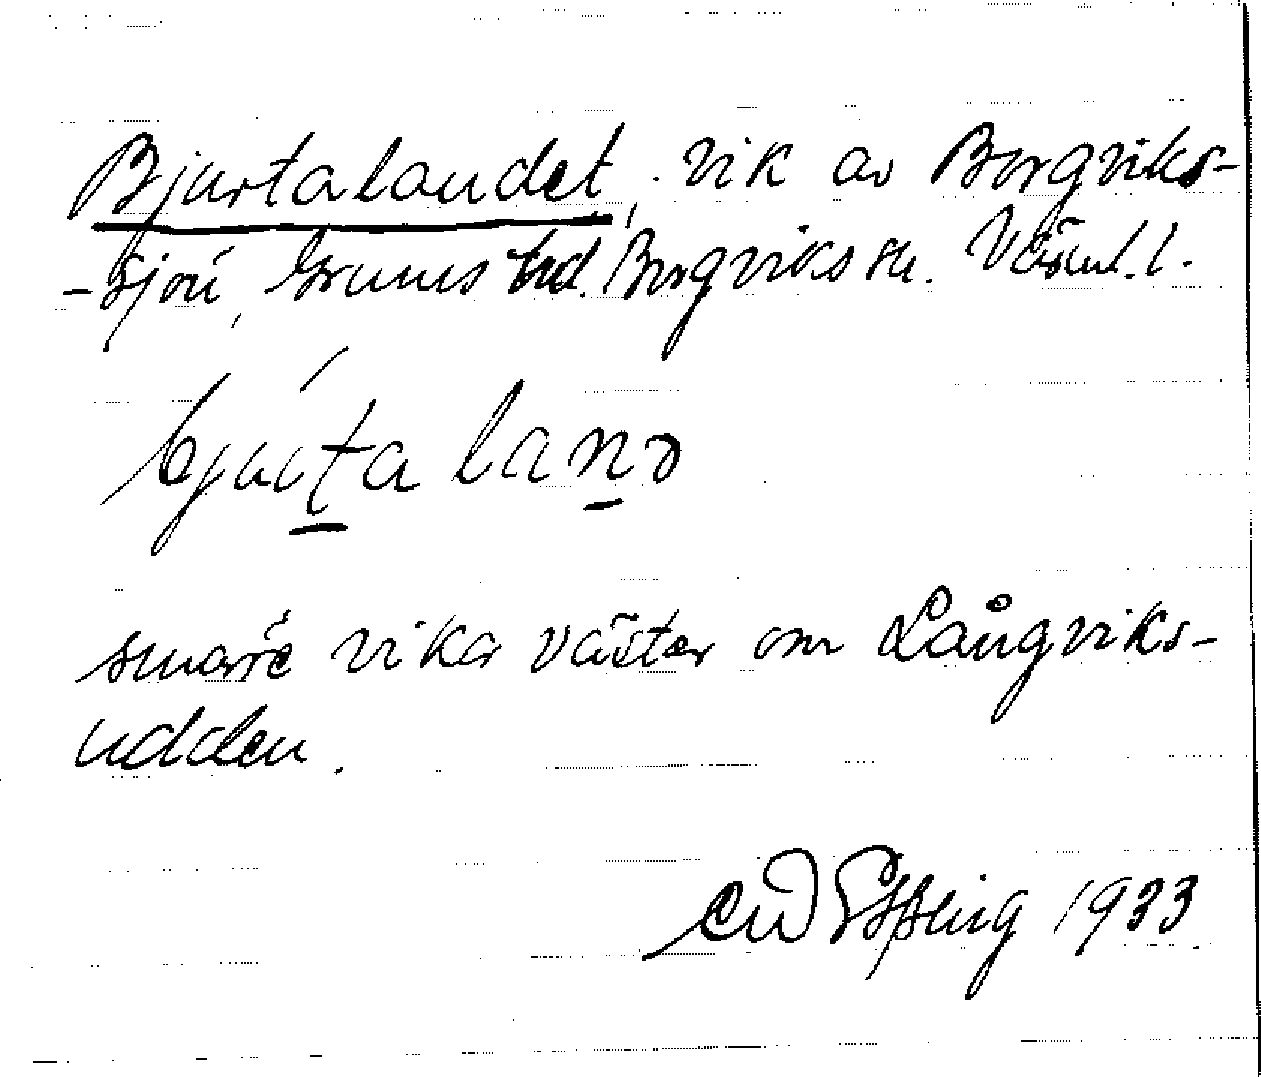 Bjurtalandet, vik av Borgviks-
-sjön, Grums hd. Borgviks sn. Värml. l.
smärre vikar väster om Långviks-
udden.
1933